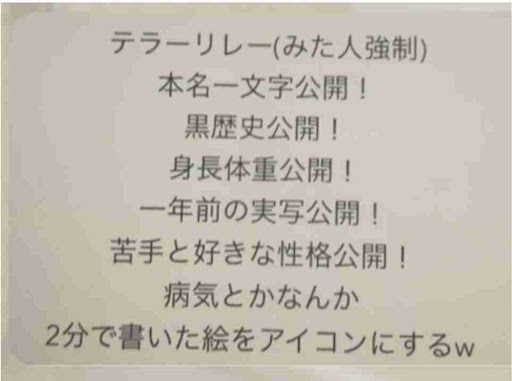 テラーリレー(みた人強制)
本名一文字公開！
黒歴史公開！
身長体重公開！
一年前の実写公開！
苦手と好きな性格公開！
病気とかなんか
2分で書いた絵をアイコンにするw